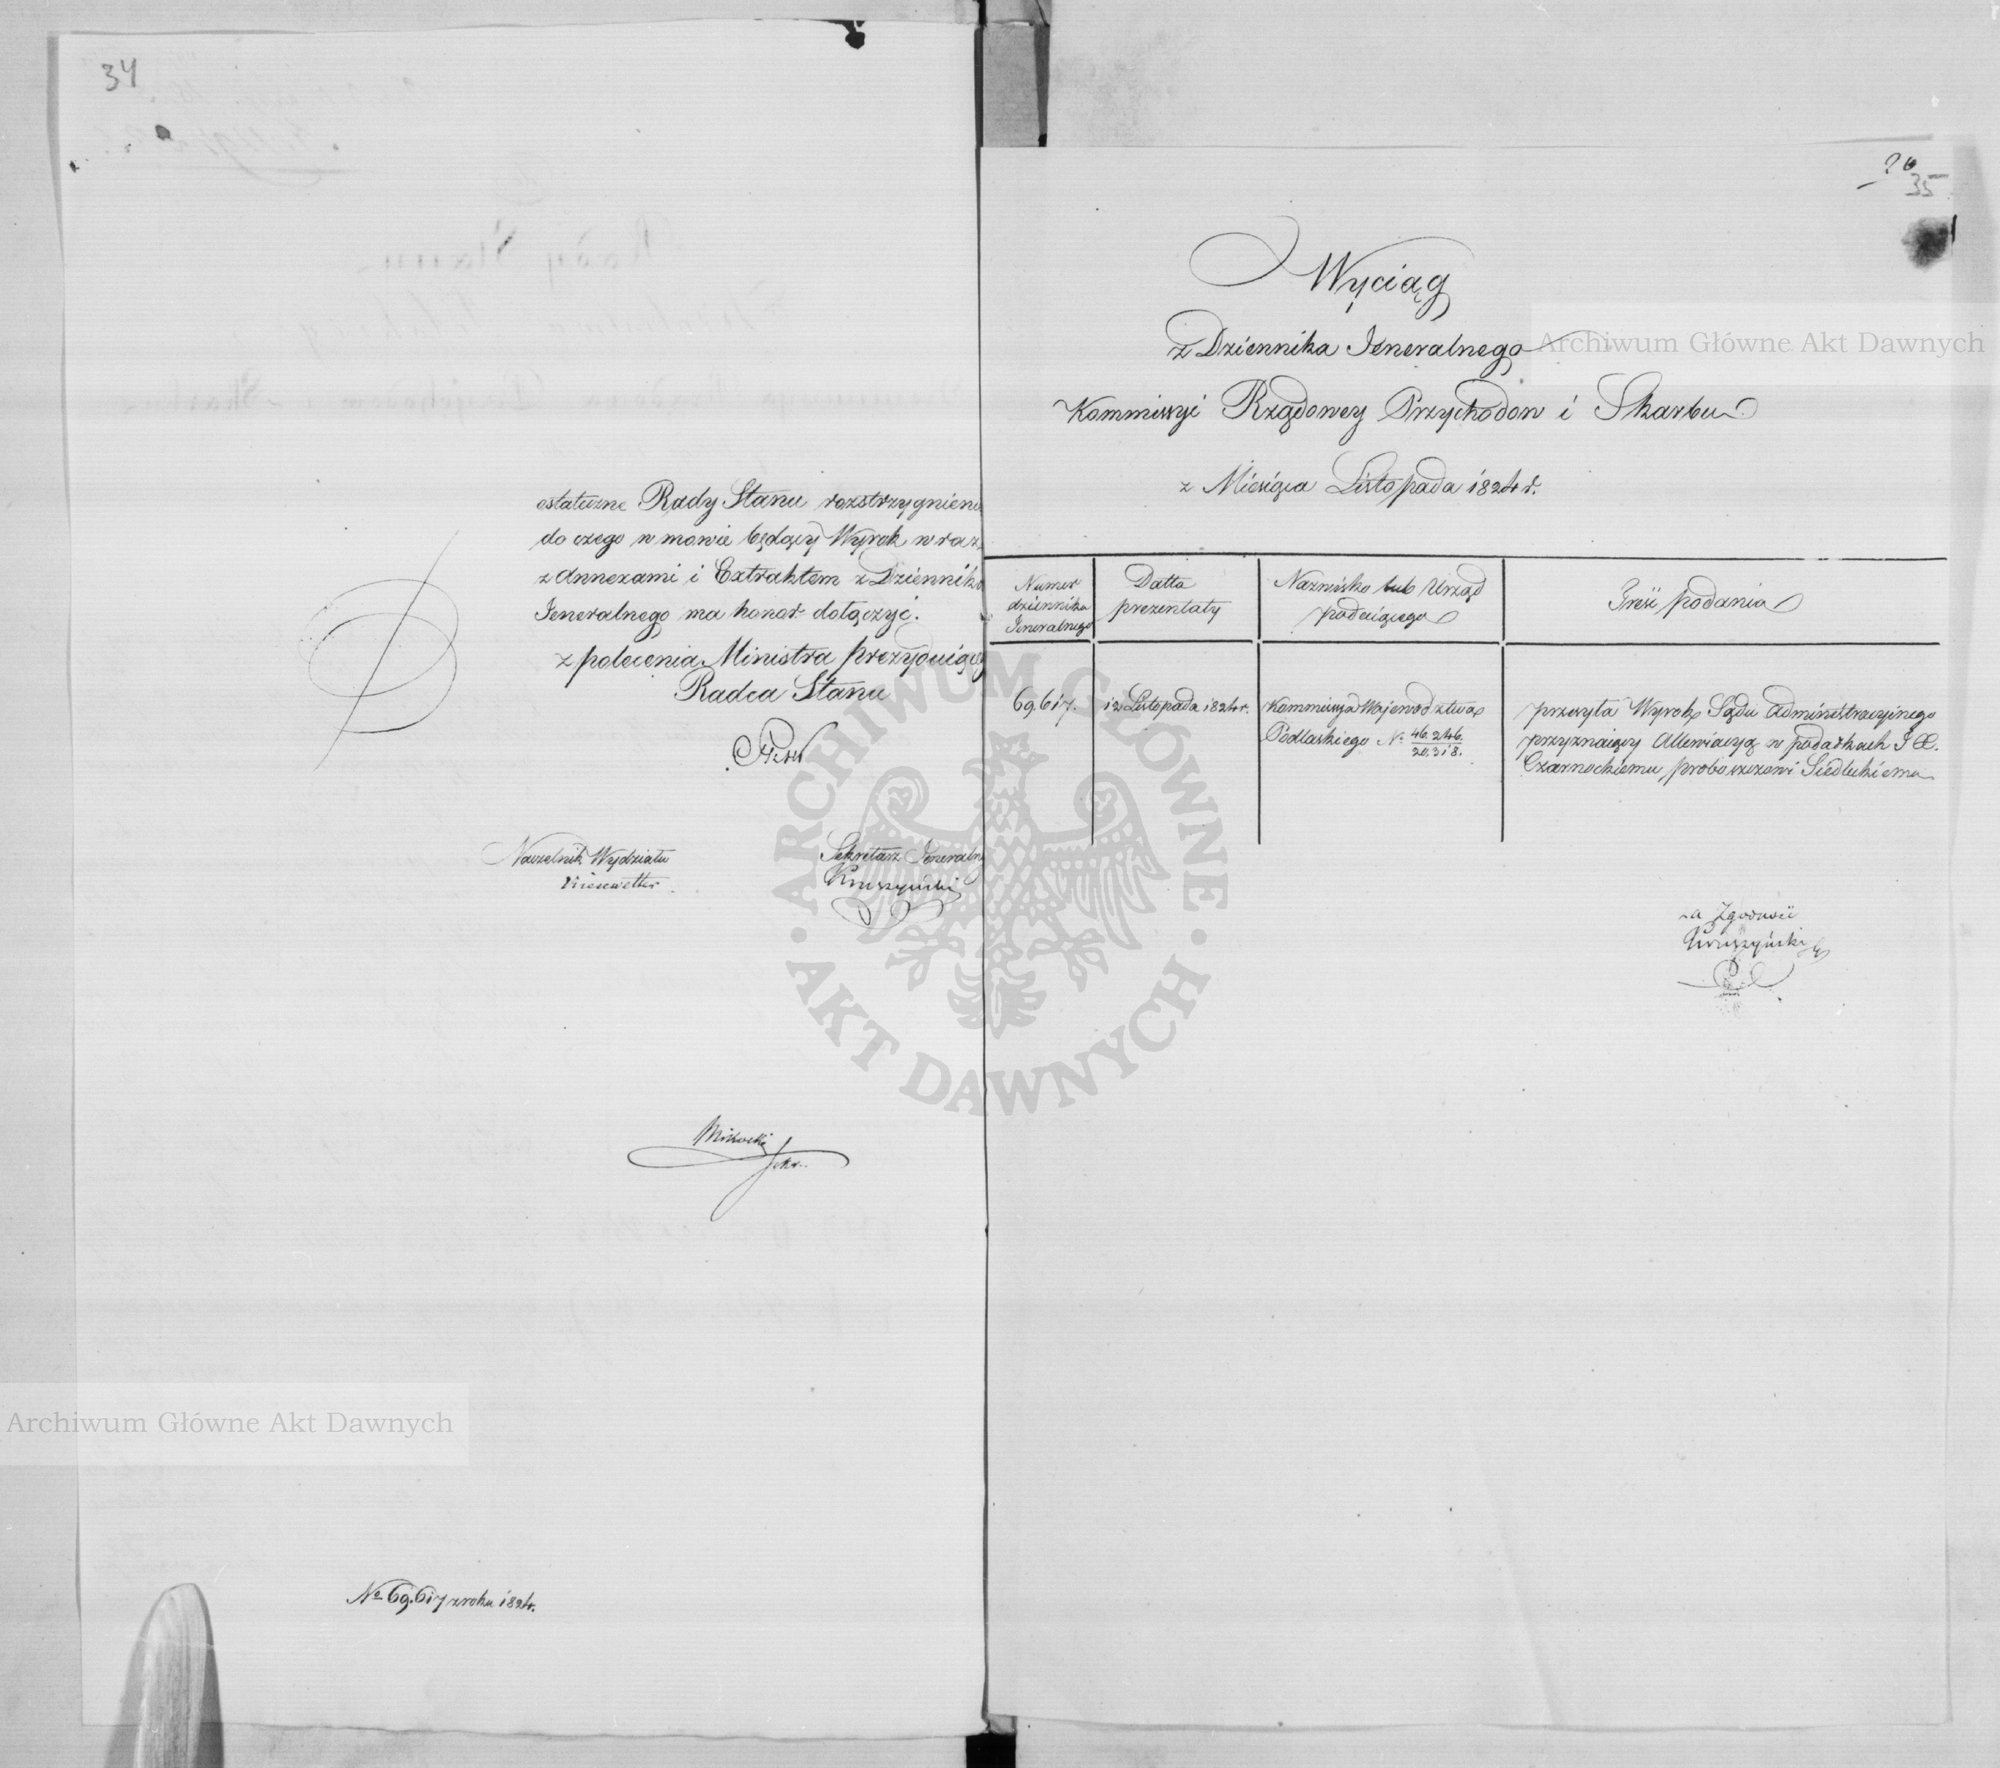 34
ostateczne Rady Stanu rozstrzygnienie
do czego w mowie będący Wyrok wraz
z Annexami i Extraktem z Dziennika
Jeneralnego ma honor dołączyć.
z polecenia Ministra prezyduiącego
Radca Stanu
Naczelnik Wydziału
Kiesewetter
Sekretarz Jeneralny
Kruszyński
No 69.617 z roku 1824.
35
Wyciąg
z Dziennika Jeneralnego
Kommissyi Rządowey Przychodów i Skarbu
z Miesiąca Listopada 1824 r.
Numer dziennika Jeneralnego
Datta prezentaty
Nazwisko lub Urząd podaiącego
Treść podania
69.617.
12 Listopada 1824 r.
Kommissya Województwa
Podlaskiego No 46.246./20.318.
przesyła Wyrok Sądu Administracyinego
przyznaiący Allewiacyą w podatkach J X.
Czarnockiemu proboszczowi Siedleckiemu
za Zgodność
Kruszyński
Archiwum Główne Akt Dawnych
Archiwum Główne Akt Dawnych
ARCHIWUM GŁÓWNE · AKT DAWNYCH ·